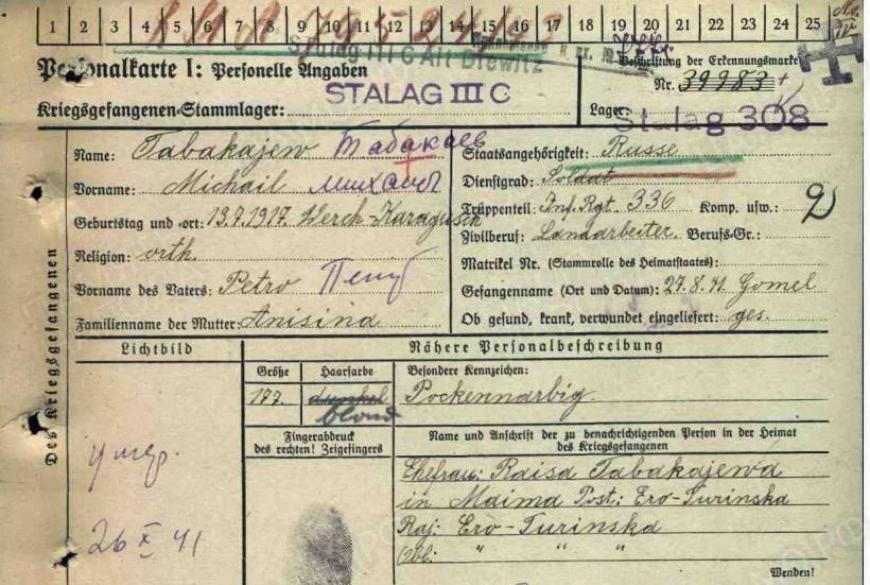 1 2 3 4 5 6 7 8 9 10 11 12 13 14 15 16 17 18 19 20 21 22 23 24 25
Stalag III C Alt Drewitz
Personalkarte I: Personelle Angaben
Beschriftung der Erkennungsmarke
Nr. 39983
Kriegsgefangenen-Stammlager: STALAG III C
Lager: Stalag 308
Des Kriegsgefangenen
Name: Tabakajew Табакаев
Vorname: Michail Михаил
Geburtstag und -ort: 13.7.1917. Werch-Karagusch
Religion: orth.
Vorname des Vaters: Petro Петр
Familienname der Mutter: Anisina
Staatsangehörigkeit: Russe
Dienstgrad: Soldat
Truppenteil: Inf. Rgt. 336 Komp. usw.: 2
Zivilberuf: Landarbeiter. Berufs-Gr.:
Matrikel Nr. (Stammrolle des Heimatstaates):
Gefangenname (Ort und Datum): 27.8.41 Gomel
Ob gesund, krank, verwundet eingeliefert: ges.
Lichtbild
Nähere Personalbeschreibung
Größe
177.
Haarfarbe
dunkel
blond
Besondere Kennzeichen:
Pockennarbig.
Fingerabdruck
des rechten! Zeigefingers
Name und Anschrift der zu benachrichtigenden Person in der Heimat
des Kriegsgefangenen
Ehefrau: Raisa Tabakajewa
in Maima Post: Ero-Turinska
Raj: Ero-Turinska
Obl: " " "
умер.
26 X 41
Wenden!